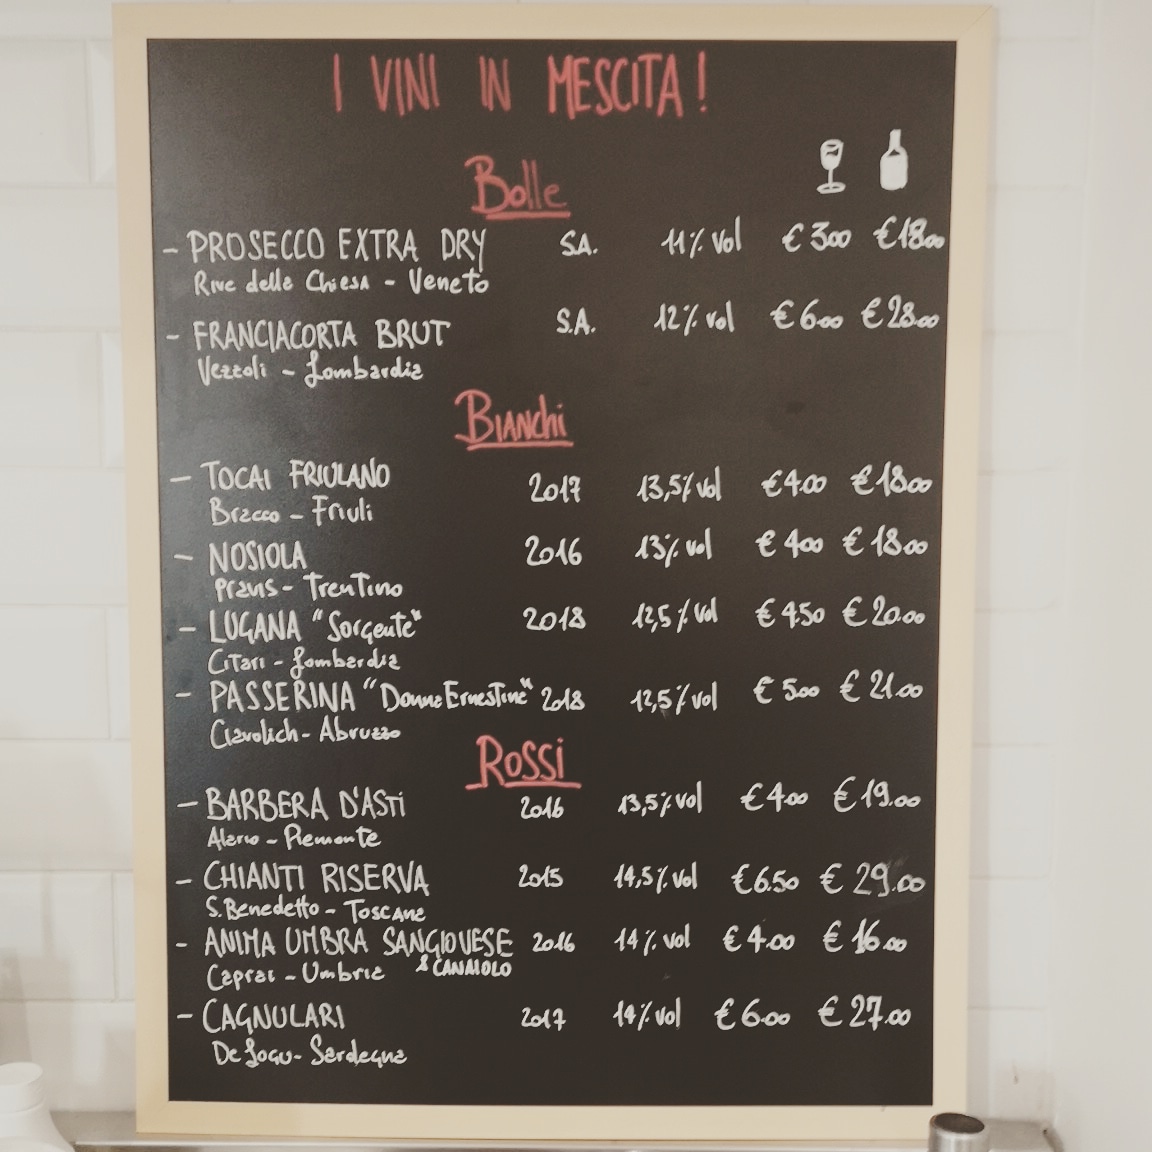 I VINI IN MESCITA!
Bolle
- PROSECCO EXTRA DRY S.A. 11% vol € 3.00 € 18.00
Rive della Chiesa - Veneto
- FRANCIACORTA BRUT S.A. 12% vol € 6.00 € 28.00
Vezzoli - Lombardia
Bianchi
- TOCAI FRIULANO 2017 13,5% vol € 4.00 € 18.00
Bracco - Friuli
- NOSIOLA 2016 13% vol € 4.00 € 18.00
Pravis - Trentino
- LUGANA "Sorgente" 2018 12,5% vol € 4.50 € 20.00
Citari - Lombardia
- PASSERINA "Donna Ernestina" 2018 12,5% vol € 5.00 € 21.00
Ciavolich - Abruzzo
Rossi
- BARBERA D'ASTI 2016 13,5% vol € 4.00 € 19.00
Alario - Piemonte
- CHIANTI RISERVA 2015 14,5% vol € 6.50 € 29.00
S. Benedetto - Toscana
- ANIMA UMBRA SANGIOVESE 2016 14% vol € 4.00 € 16.00
Caprai - Umbria & CANAIOLO
- CAGNULARI 2017 14% vol € 6.00 € 27.00
De Logu - Sardegna